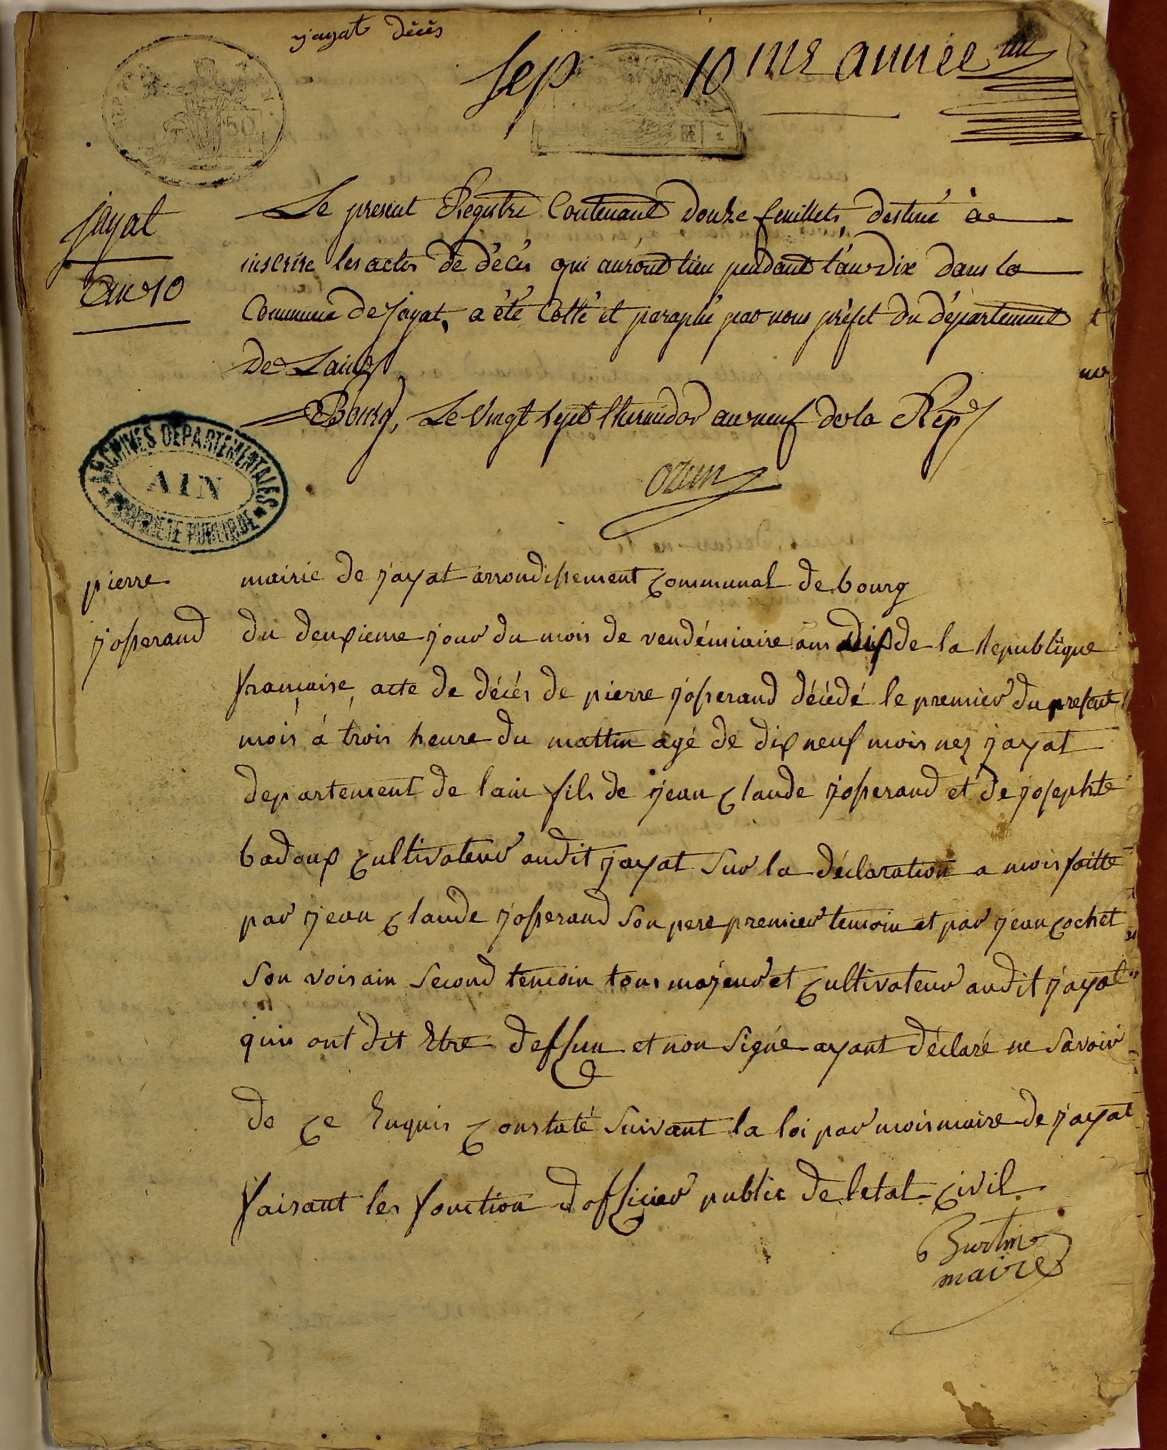 jayat décès
Sep 10me année
jayat
an 10
Le present Registre Contenant douze feuillets, destiné à
inscrire les actes de décès qui auront lieu pendant l'an dix dans la
Commune de Jayat, a été Cotté et paraphé par nous préfet du département
De Lain,
Bourg, Le vingt sept thermidor an neuf de la Rep
ozun
ARCHIVES DEPARTEMENTALES
AIN
PROPRIETE PUBLIQUE
pierre
josserand
mairie de jayat arrondissement communal de bourg
du deuxieme jour du mois de vendémiaire ans dix de la republique
française, acte de décés de pierre josserand décédé le premier du presant
mois à trois heure du mattin agé de dix neuf mois nez jayat
departement de lain fils de jean claude josserand et de josephte
badoux cultivateur audit jayat sur la déclaration a mois faitte
par jean claude josserand son pere premier temoin et par jean cochet
son voisain second temoin tous majeur et cultivateur audit jayat
quis ont dit Etre deffun et non signé ayant déclaré ne savoir
de ce Enquis constaté suivant la loi par mois maire de jayat
faisant les fonction dofficier public de letat civil
Burtin
maire